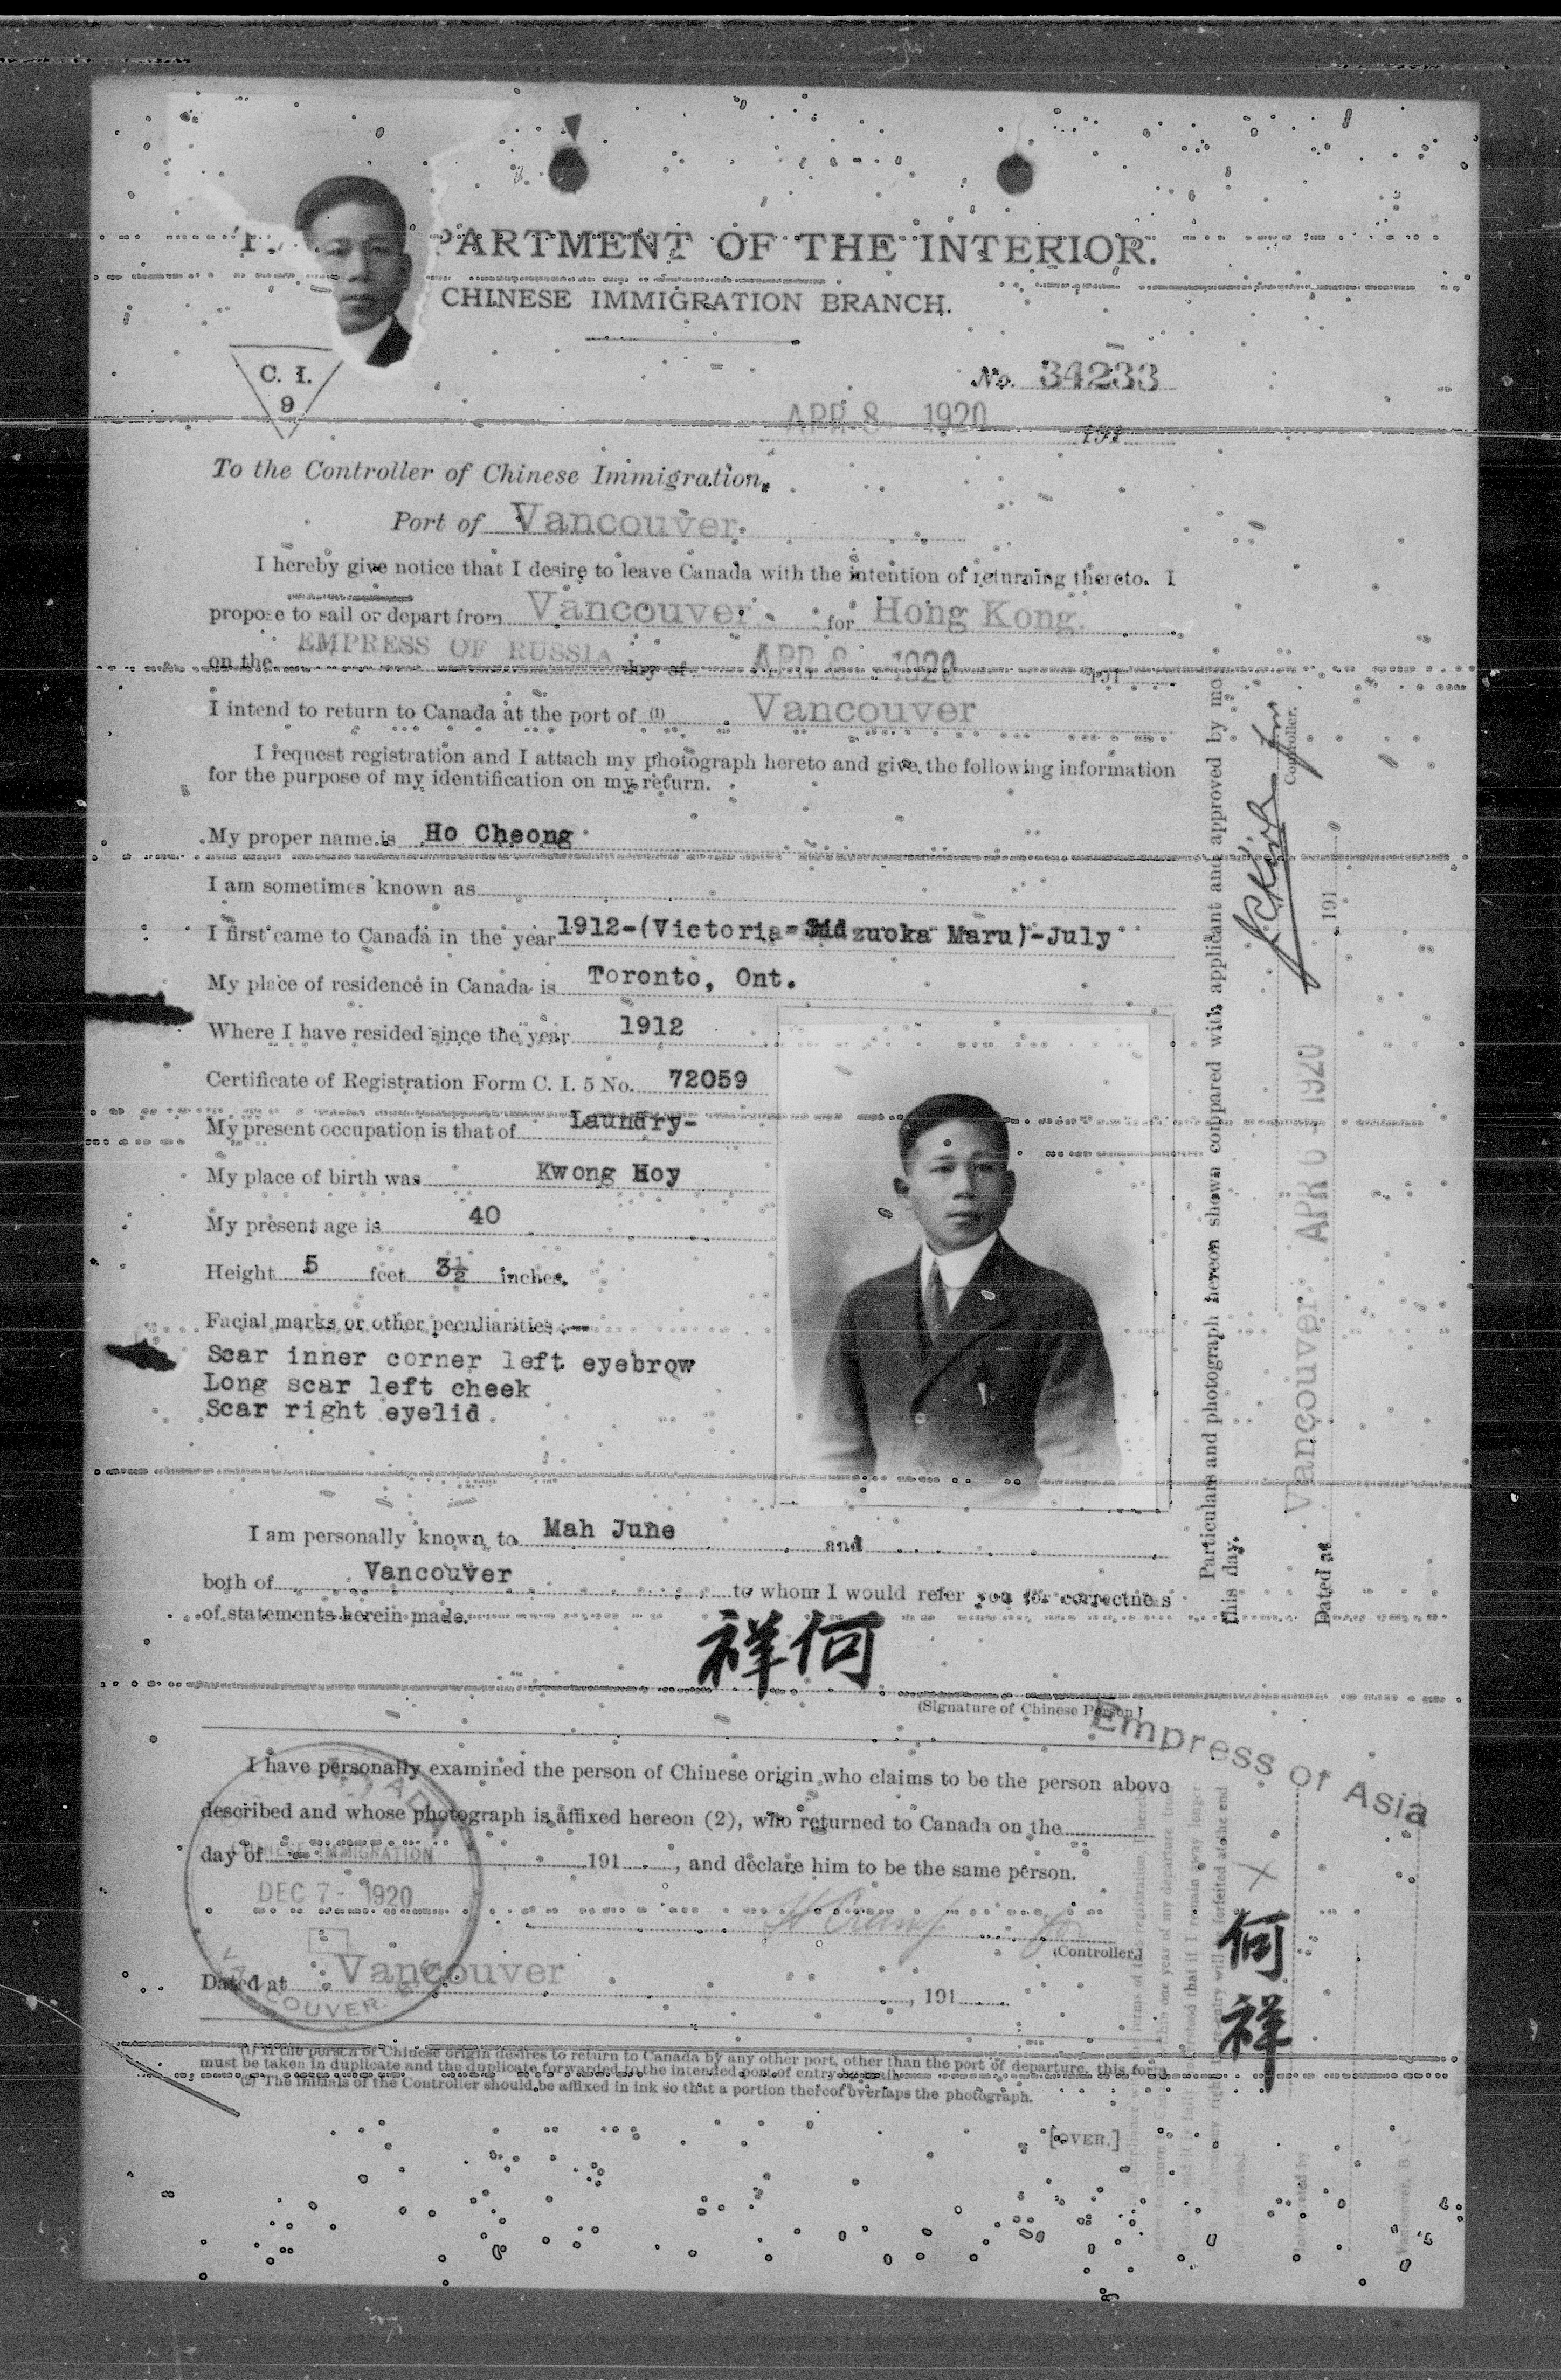 PARTMENT OF THE INTERIOR.
CHINESE IMMIGRATION BRANCH.
C. I.
9
No. 34233
APR 8 1920 191
To the Controller of Chinese Immigration,
Port of Vancouver.
I hereby give notice that I desire to leave Canada with the intention of returning thereto. I
propose to sail or depart from Vancouver. for Hong Kong.
on the EMPRESS OF RUSSIA day of APR 8 1920 191
I intend to return to Canada at the port of (1) Vancouver
I request registration and I attach my photograph hereto and give the following information
for the purpose of my identification on my return.
My proper name is Ho Cheong
I am sometimes known as
I first came to Canada in the year 1912-(Victoria- zuoka Maru)-July
My place of residence in Canada is Toronto, Ont.
Where I have resided since the year 1912
Certificate of Registration Form C. I. 5 No. 72059
My present occupation is that of Laundry-
My place of birth was Kwong Hoy
My present age is 40
Height 5 feet 3½ inches.
Facial marks or other peculiarities :—
Scar inner corner left eyebrow
Long scar left cheek
Scar right eyelid
I am personally known to Mah June and
both of Vancouver to whom I would refer you for correctness
of statements herein made.
祥何
(Signature of Chinese Person)
Empress of Asia
I have personally examined the person of Chinese origin who claims to be the person above
described and whose photograph is affixed hereon (2), who returned to Canada on the
day of 191 , and declare him to be the same person.
IMMIGRATION
DEC 7 - 1920
(Controller.)
Dated at Vancouver , 191
COUVER
(1) If the person of Chinese origin desires to return to Canada by any other port, other than the port of departure, this form
must be taken in duplicate and the duplicate forwarded to the intended port of entry by mail.
(2) The initials of the Controller should be affixed in ink so that a portion thereof overlaps the photograph.
[OVER.]
Particulars and photograph hereon shown compared with applicant and approved by me
this day.
Controller.
Dated at Vancouver APR 6 - 1920 191
何祥
Vancouver, B. C.